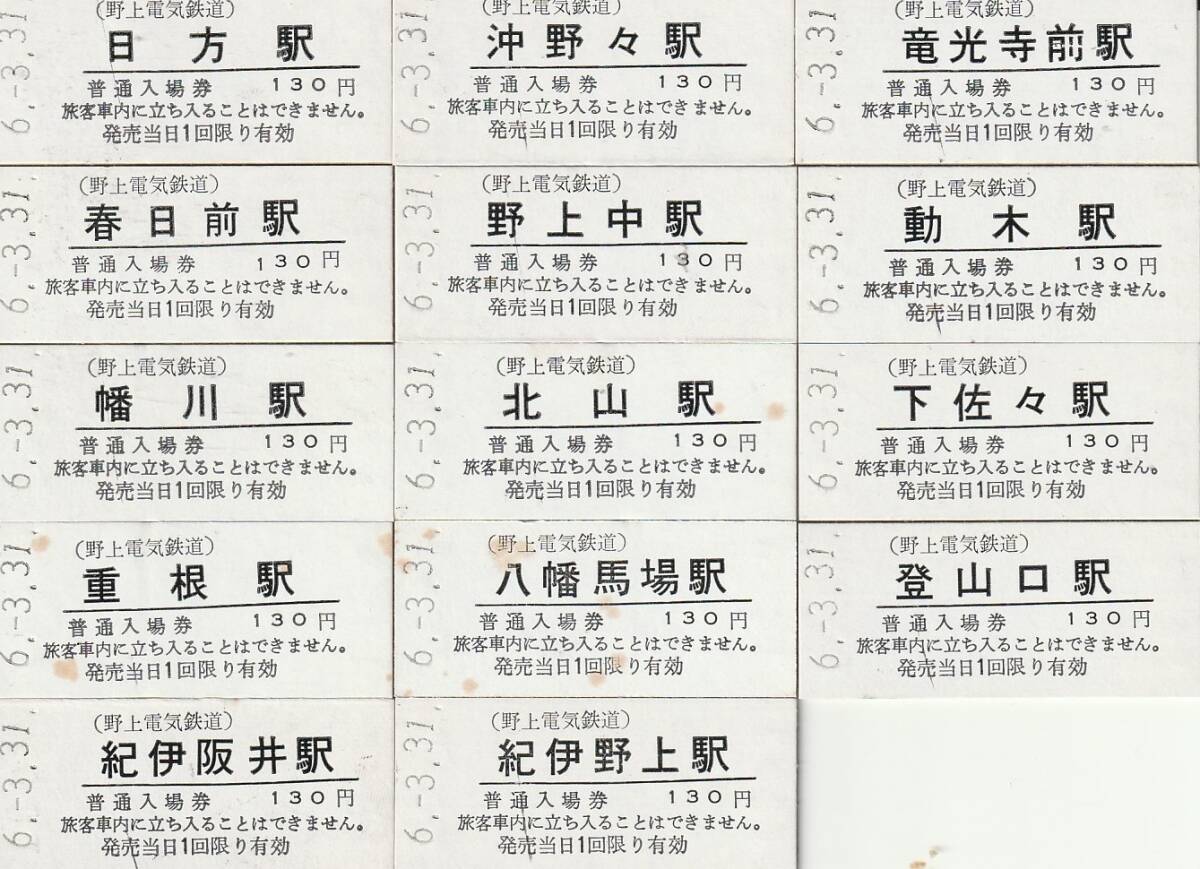 6.-3.31.
(野上電気鉄道)
日方駅
普通入場券 130円
旅客車内に立ち入ることはできません。
発売当日1回限り有効
6.-3.31.
(野上電気鉄道)
沖野々駅
普通入場券 130円
旅客車内に立ち入ることはできません。
発売当日1回限り有効
6.-3.31
(野上電気鉄道)
竜光寺前駅
普通入場券 130円
旅客車内に立ち入ることはできません。
発売当日1回限り有効
6.-3.31.
(野上電気鉄道)
春日前駅
普通入場券 130円
旅客車内に立ち入ることはできません。
発売当日1回限り有効
6.-3.31.
(野上電気鉄道)
野上中駅
普通入場券 130円
旅客車内に立ち入ることはできません。
発売当日1回限り有効
6.-3.31.
(野上電気鉄道)
動木駅
普通入場券 130円
旅客車内に立ち入ることはできません。
発売当日1回限り有効
6.-3.31.
(野上電気鉄道)
幡川駅
普通入場券 130円
旅客車内に立ち入ることはできません。
発売当日1回限り有効
6.-3.31.
(野上電気鉄道)
北山駅
普通入場券 130円
旅客車内に立ち入ることはできません。
発売当日1回限り有効
6.-3.31.
(野上電気鉄道)
下佐々駅
普通入場券 130円
旅客車内に立ち入ることはできません。
発売当日1回限り有効
6.-3.31.
(野上電気鉄道)
重根駅
普通入場券 130円
旅客車内に立ち入ることはできません。
発売当日1回限り有効
6.-3.31.
(野上電気鉄道)
八幡馬場駅
普通入場券 130円
旅客車内に立ち入ることはできません。
発売当日1回限り有効
6.-3.31.
(野上電気鉄道)
登山口駅
普通入場券 130円
旅客車内に立ち入ることはできません。
発売当日1回限り有効
6.-3.31.
(野上電気鉄道)
紀伊阪井駅
普通入場券 130円
旅客車内に立ち入ることはできません。
発売当日1回限り有効
6.-3.31.
(野上電気鉄道)
紀伊野上駅
普通入場券 130円
旅客車内に立ち入ることはできません。
発売当日1回限り有効